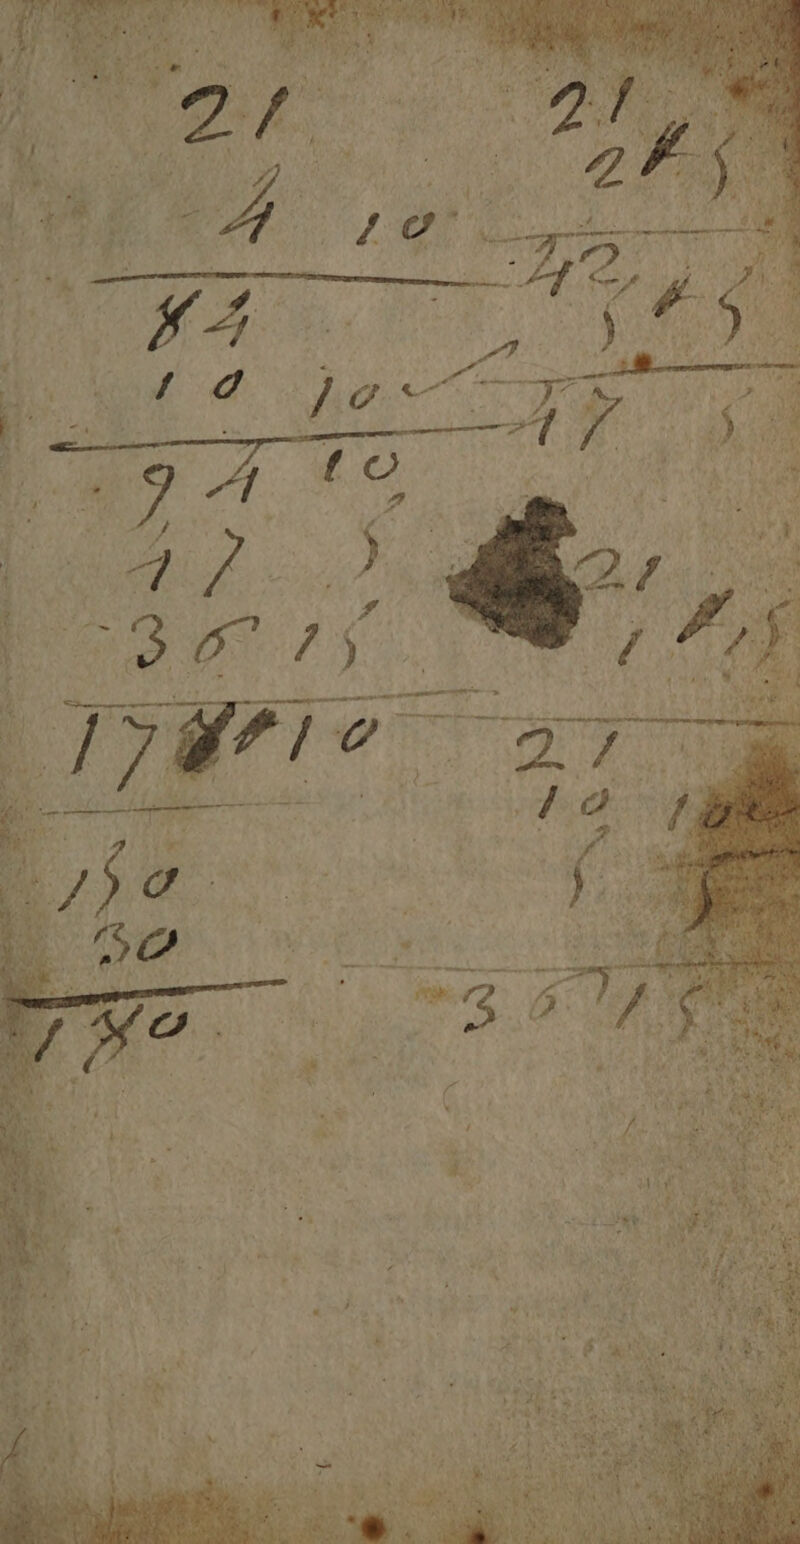 21
4 10
84
10 10
94 10
47 5
36 15
178 10
150
30
180
21
2 5
42
5 5
47 5
21
1 15
21
10 10
5 5
36 15